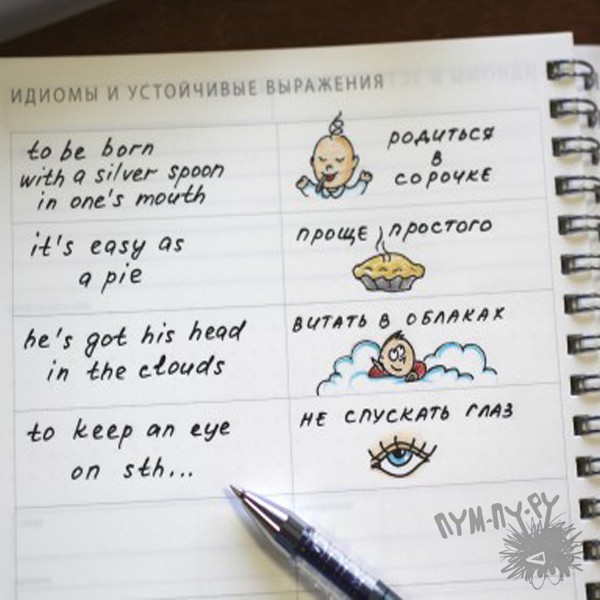 ИДИОМЫ И УСТОЙЧИВЫЕ ВЫРАЖЕНИЯ
to be born
with a silver spoon
in one's mouth
РОДИТЬСЯ
В
СОРОЧКЕ
it's easy as
a pie
ПРОЩЕ ПРОСТОГО
he's got his head
in the clouds
ВИТАТЬ В ОБЛАКАХ
to keep an eye
on sth...
НЕ СПУСКАТЬ ГЛАЗ
ПУМ-ПУ.РУ